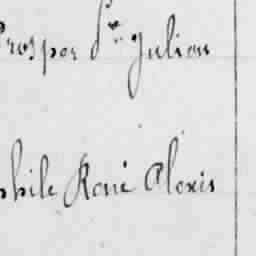 Prosper Ste Julien
phile René Alexis